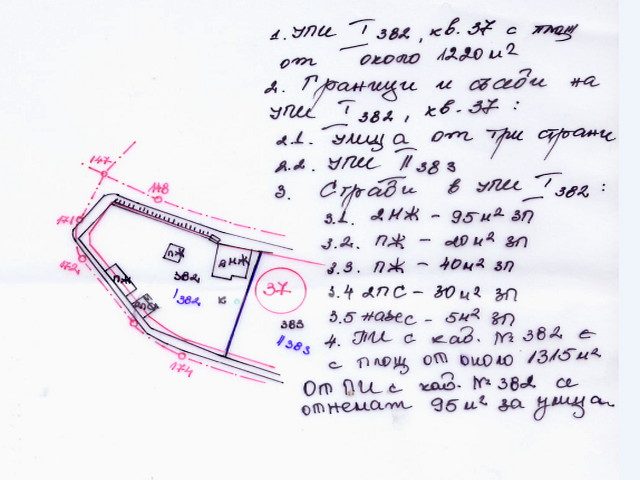 1. УПИ I 382, кв. 37 с площ
от около 1220 м²
2. Граници и съседи на
УПИ I 382, кв. 37:
2.1. Улица от три страни
2.2. УПИ II 383
3. Сгради в УПИ I 382:
3.1. 2МЖ - 95 м² ЗП
3.2. ПЖ - 20 м² ЗП
3.3. ПЖ - 40 м² ЗП
3.4 2ПС - 30 м² ЗП
3.5 навес - 5 м² ЗП
4. ПИ с кад. № 382 е
с площ от около 1315 м²
От ПИ с кад. № 382 се
отнемат 95 м² за улица.
147
148
171
172
ПЖ
2МЖ
ПЖ
382
I 382
2ПС
К
37
383
II 383
174